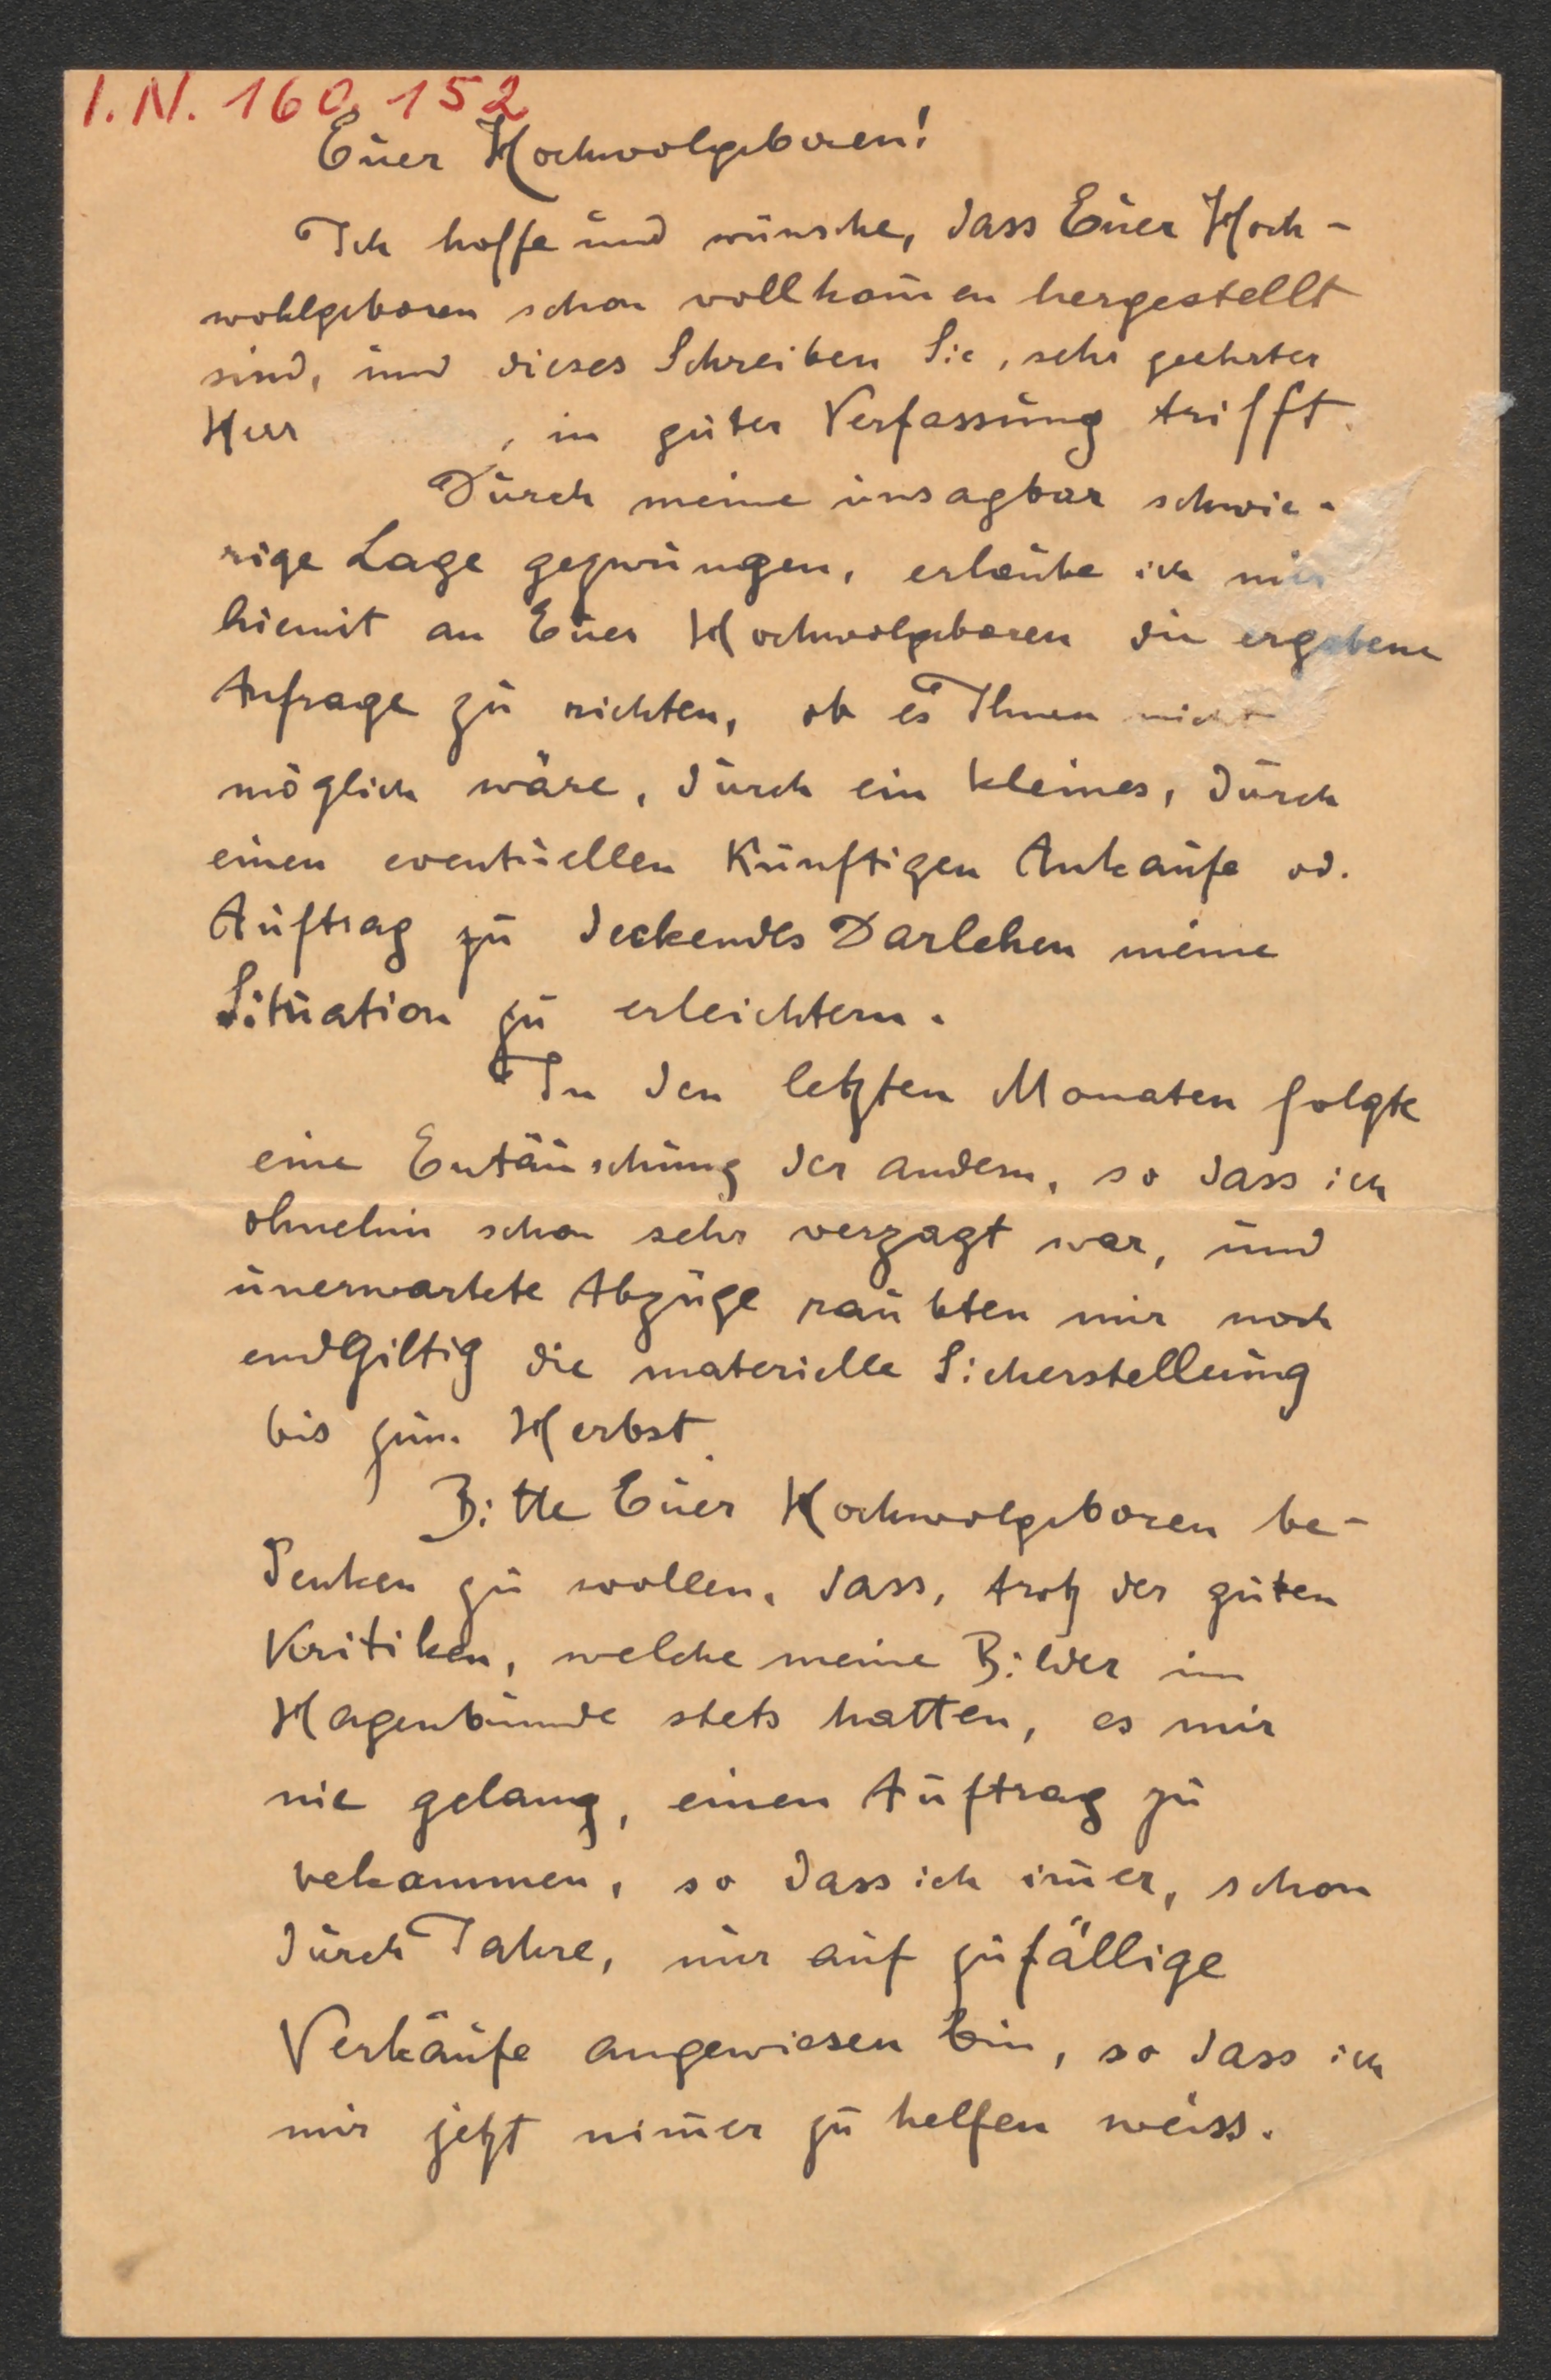 I.N. 160.152
Euer Hochwolgeboren!
Ich hoffe und wünsche, dass Euer Hoch-
wohlgeboren schon vollkom̅en hergestellt
sind, und dieses Schreiben Sie, sehr geehrter
Herr , in guter Verfassung trifft.
Durch meine unsagbar schwie-
rige Lage gezwungen, erlaube ich mir
hiemit an Euer Hochwolgeboren die ergebene
Anfrage zu richten, ob es Ihnen nicht
möglich wäre, durch ein kleines, durch
einen eventuellen künftigen Ankaufe od.
Auftrag zu deckendes Darlehen meine
Situation zu erleichtern.
In den letzten Monaten folgte
eine Entäuschung der andern, so dass ich
ohnehin schon sehr verzagt war, und
unerwartete Abzüge raubten mir noch
endgiltig die materielle Sicherstellung
bis zum Herbst.
Bitte Euer Hochwolgeboren be-
denken zu wollen, dass, trotz der guten
Kritiken, welche meine Bilder im
Hagenbunde stets hatten, es mir
nie gelang, einen Auftrag zu
bekommen, so dass ich im̅er, schon
durch Jahre, nur auf zufällige
Verkäufe angewiesen bin, so dass ich
mir jetzt nim̅er zu helfen weiss.